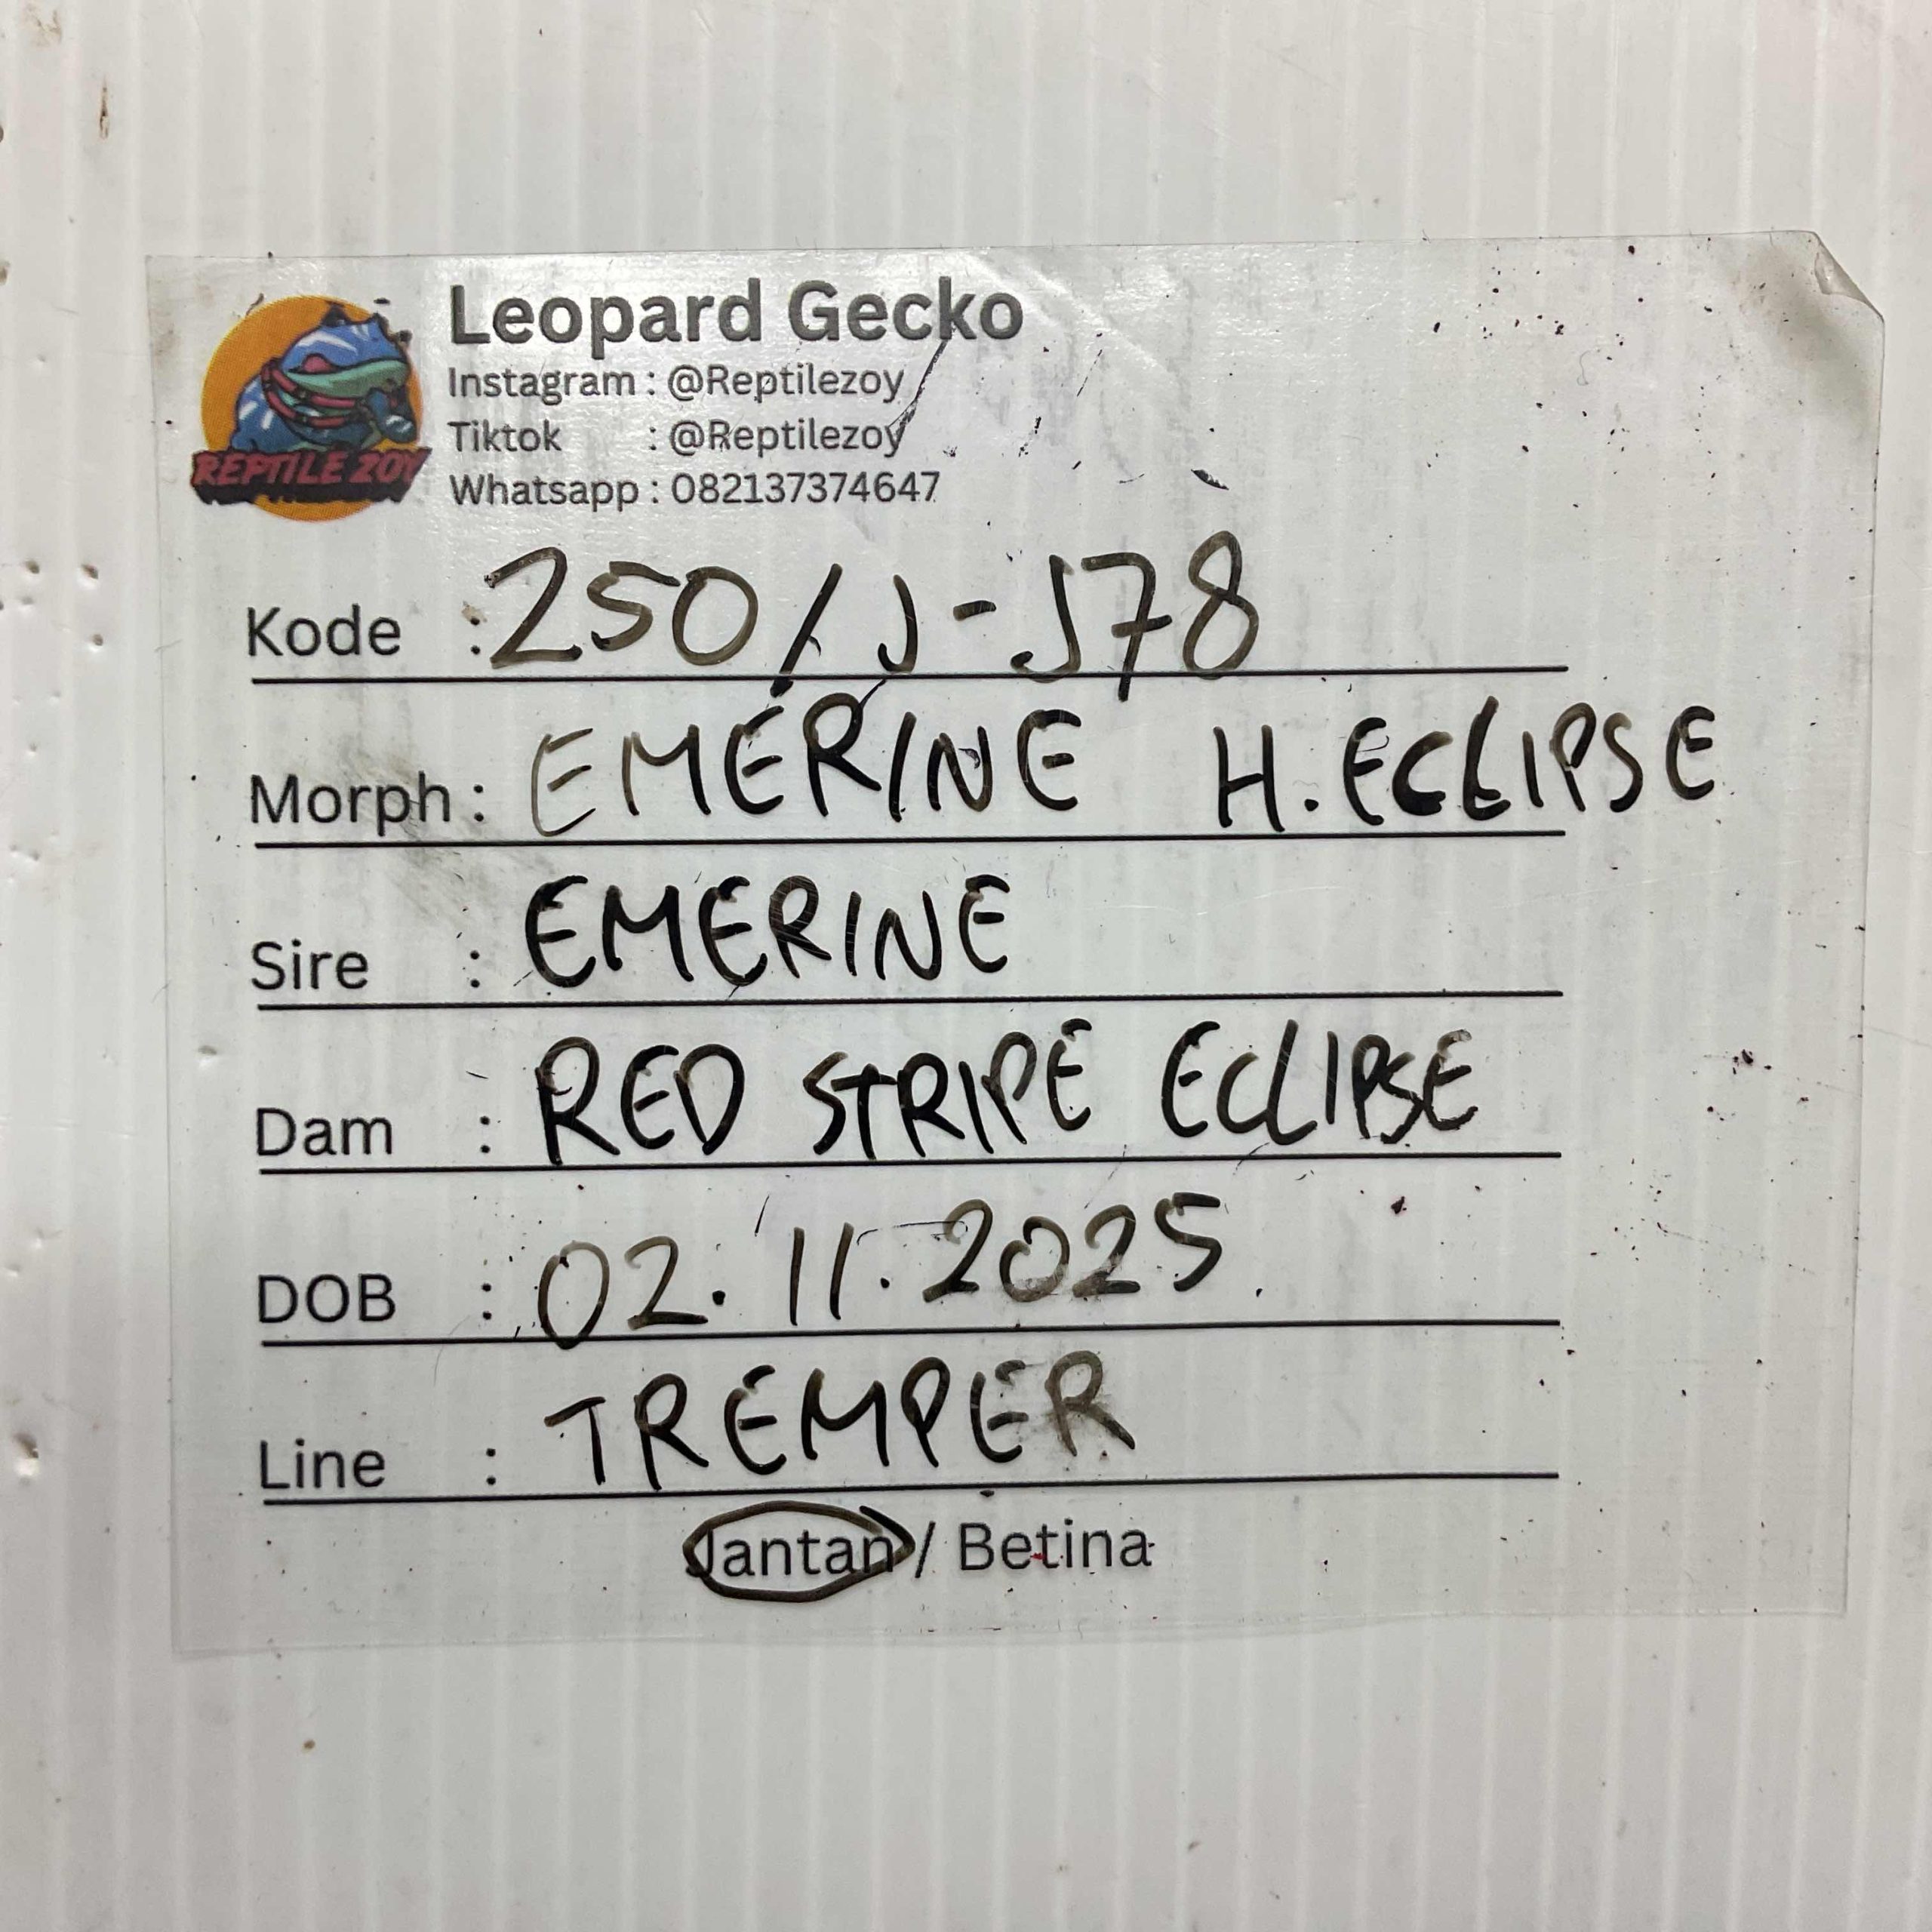 Leopard Gecko
Instagram : @Reptilezoy
Tiktok : @Reptilezoy
Whatsapp : 082137374647
REPTILE ZOY
Kode : 250/J-J78
Morph : EMERINE H. ECLIPSE
Sire : EMERINE
Dam : RED STRIPE ECLIPSE
DOB : 02.11.2025.
Line : TREMPER
Jantan / Betina